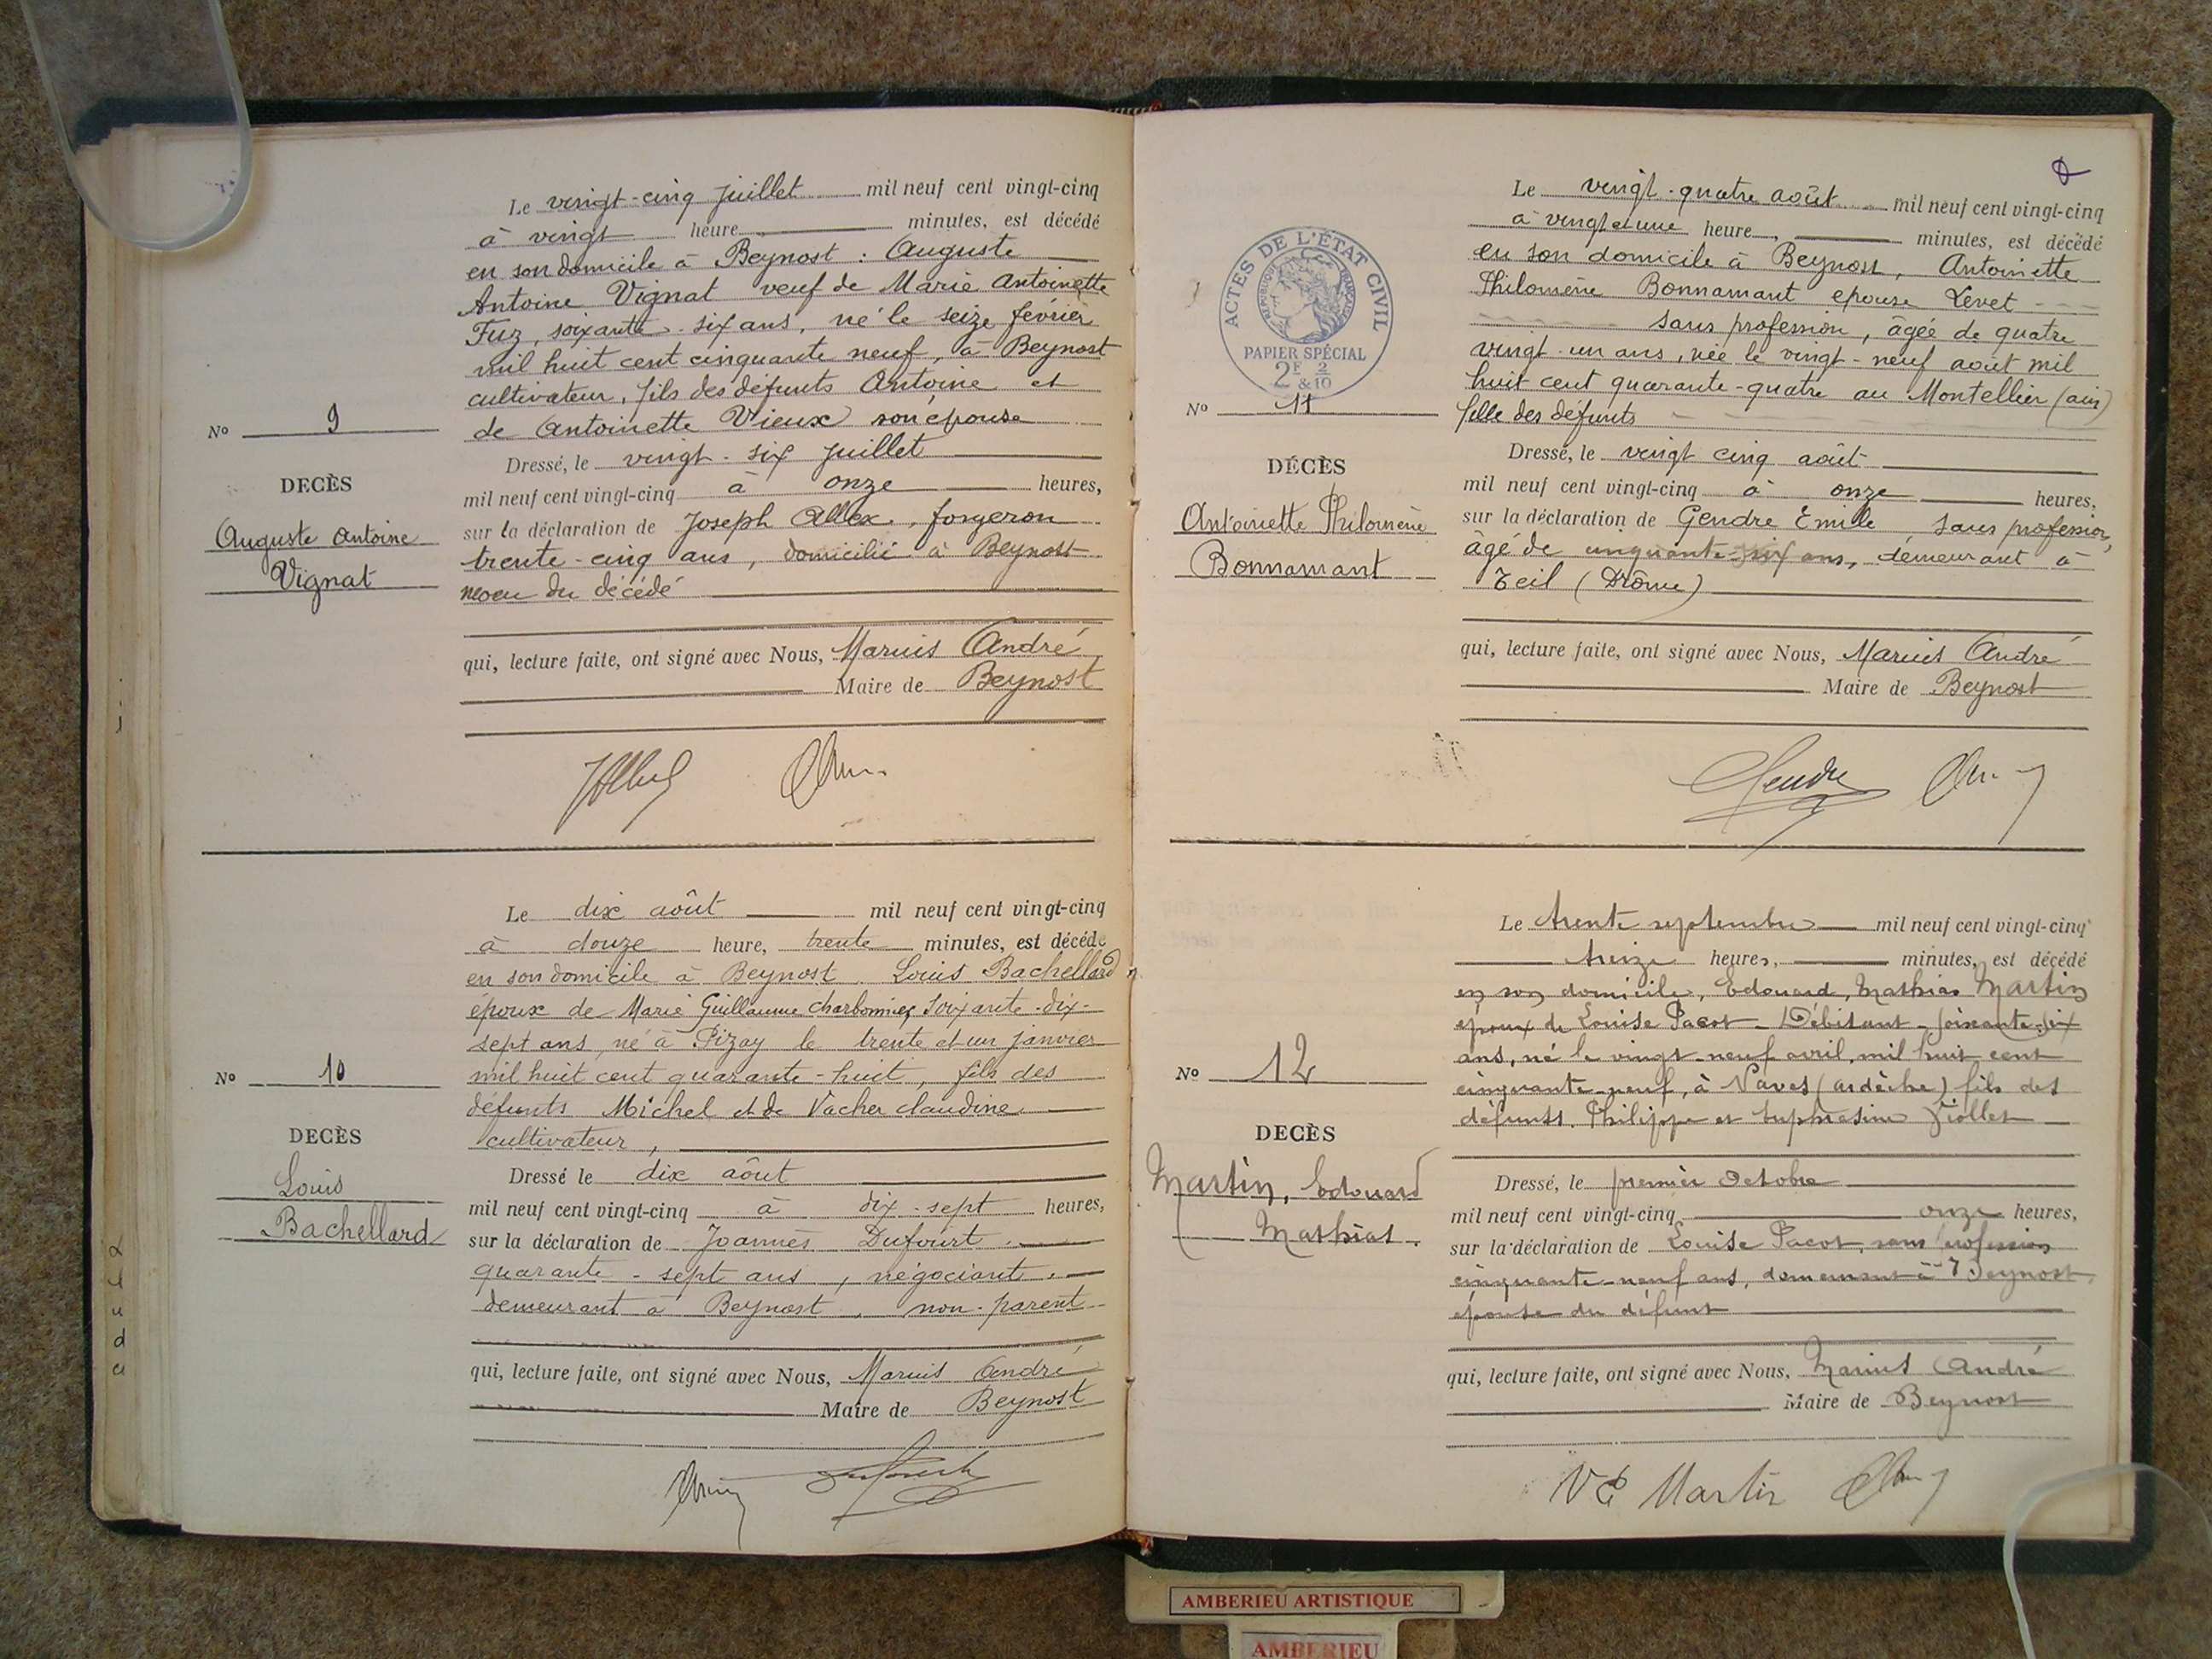 Le vingt-cinq juillet mil neuf cent vingt-cinq
à vingt heure minutes, est décédé
en son domicile à Beynost : Auguste
Antoine Vignat veuf de Marie Antoinette
Fuz, soixante-six ans, né le seize février
mil huit cent cinquante neuf, à Beynost
cultivateur, fils des défunts Antoine et
de Antoinette Vieux son épouse
No 9
Dressé, le vingt-six juillet
DECÈS
mil neuf cent vingt-cinq à onze heures,
Auguste Antoine
Vignat
sur la déclaration de Joseph Allex, forgeron
trente-cinq ans, domicilié à Beynost
neveu du décédé
qui, lecture faite, ont signé avec Nous, Marius André
Maire de Beynost
Le dix août mil neuf cent vingt-cinq
à douze heure, trente minutes, est décédé
en son domicile à Beynost Louis Bachellard
époux de Marie Guillaume Charbonnier, soixante-dix-
sept ans, né à Pizay le trente et un janvier
mil huit cent quarante-huit, fils des
défunts Michel et de Vacher Claudine
cultivateur,
No 10
DECÈS
Louis
Bachellard
Dressé le dix août
mil neuf cent vingt-cinq à dix-sept heures,
sur la déclaration de Joannès Dufourt
quarante-sept ans, négociant
demeurant à Beynost, non-parent
qui, lecture faite, ont signé avec Nous, Marius André
Maire de Beynost
ACTES DE L'ÉTAT CIVIL
RÉPUBLIQUE FRANÇAISE
PAPIER SPÉCIAL
2F 2
& 10
Le vingt-quatre août mil neuf cent vingt-cinq
à vingt et une heure, minutes, est décédé
en son domicile à Beynost, Antoinette
Philomène Bonnamant epouse Levet
sans profession, âgée de quatre
vingt-un ans, née le vingt-neuf août mil
huit cent quarante-quatre au Montellier (ain)
fille des défunts
No 11
DÉCÈS
Antoinette Philomène
Bonnamant
Dressé, le vingt cinq août
mil neuf cent vingt-cinq à onze heures,
sur la déclaration de Gendre Emile sans profession,
âgé de cinquante-six ans, demeurant à
Teil (Drôme)
qui, lecture faite, ont signé avec Nous, Marius André
Maire de Beynost
Gendre
Le trente septembre mil neuf cent vingt-cinq
treize heures, minutes, est décédé
en son domicile, Edouard, Mathias Martin
époux de Louise Pacot - Débitant - soixante-six
ans, né le vingt-neuf avril, mil huit cent
cinquante-neuf, à Naves (ardèche) fils des
défunts Philippe et Euphrasine Violles
No 12
DECÈS
Martin, Edouard
Mathias.
Dressé, le premier Octobre
mil neuf cent vingt-cinq onze heures,
sur la déclaration de Louise Pacot, sans profession
cinquante-neuf ans, demeurant à Beynost,
épouse du défunt
qui, lecture faite, ont signé avec Nous, Marius André
Maire de Beynost
Ve Martin
AMBERIEU ARTISTIQUE
AMBERIEU